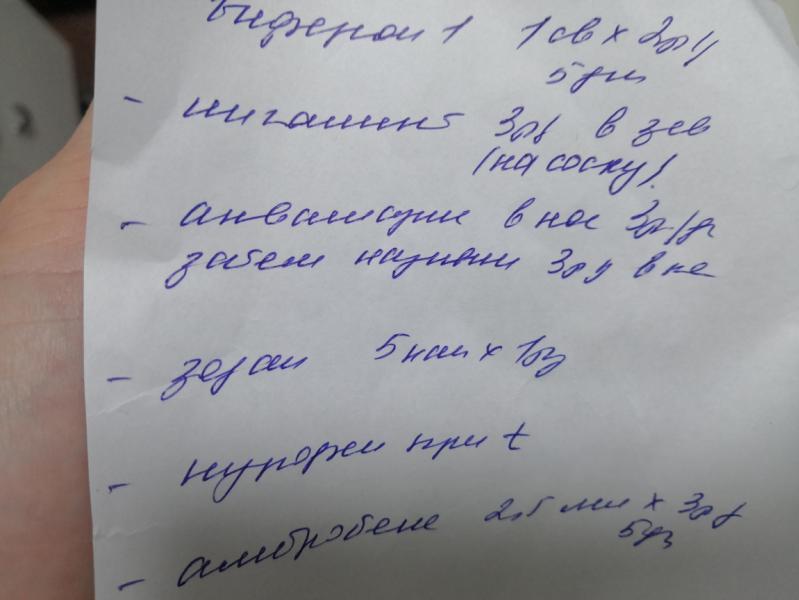 Виферон 1 1св х 2р/д
5 дн
- ингалипт 3р/д в зев
(на соску).
- аквалор в нос 3р/д
затем називин 3р/д в нос
- зодак 5 кап х 1р/д
- нурофен при t
- амбробене 2,5 мл х 3р/д
5 дн